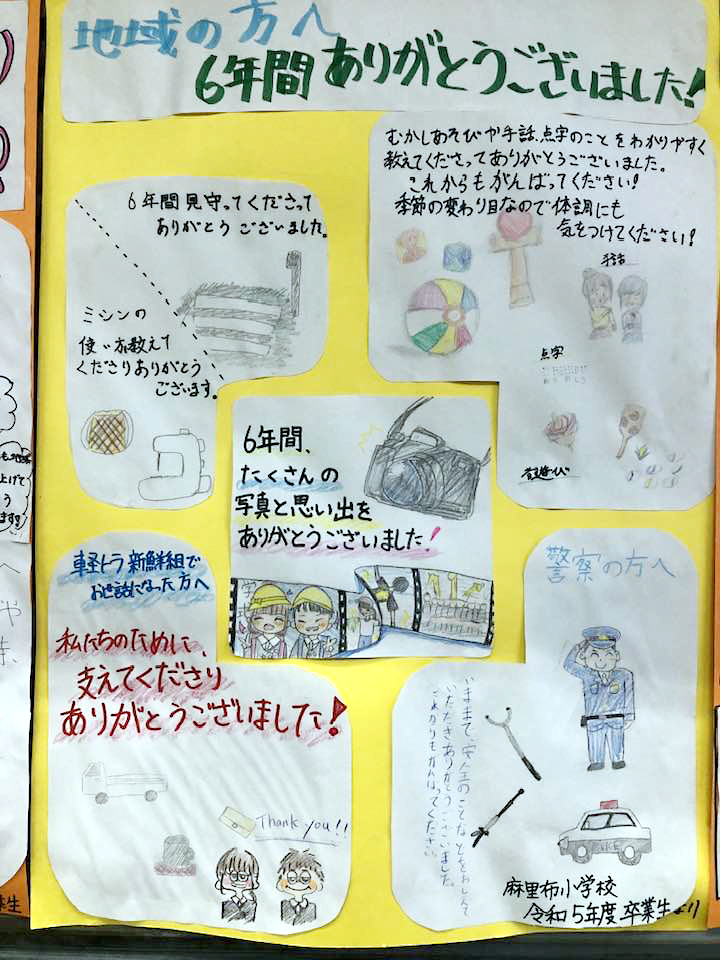 地域の方へ
6年間ありがとうございました!
むかしあそびや手話、点字のことをわかりやすく
教えてくださってありがとうございました。
これからもがんばってください!
季節の変わり目なので体調にも
気をつけてください!
手話
点字
昔遊び
6年間見守ってくださって
ありがとうございました。
ミシンの
使い方教えて
くださりありがとう
ございます。
6年間、
たくさんの
写真と思い出を
ありがとうございました!
軽トラ新鮮組で
お世話になった方へ
私たちのために、
支えてくださり
ありがとうございました!
Thank you!!
警察の方へ
いままで、安全のことなどをおしえて
いただきありがとうございました。
これからもがんばってください。
POLICE
麻里布小学校
令和5年度卒業生より